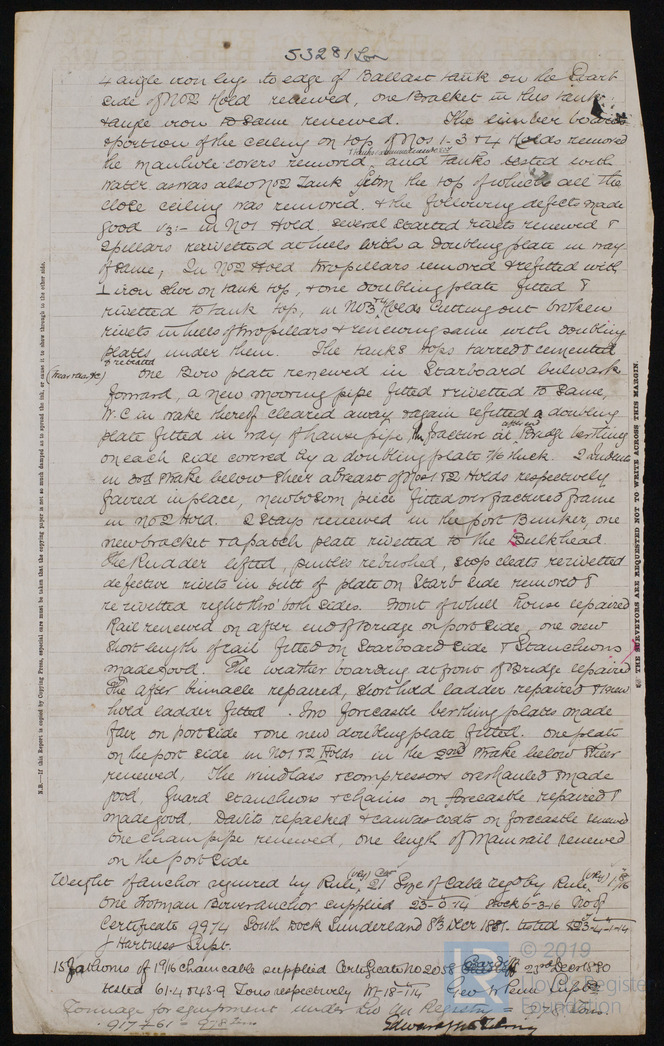 53281 Lon
4 angle iron lugs to edge of Ballast tank on the Starb
side of No2 Hold renewed, one Bracket in this tank
& angle iron to same renewed. The limber boards
& portion of the ceiling on top of Nos 1-3 & 4 Holds removed
the manhole covers removed, and tanks tested with
water as was also No2 Tank from the top of which all the
close ceiling was removed, & the following defects made
good viz:- in No1 Hold several started rivets renewed &
2 pillars rerivetted at heels with a doubling plate in way
of same, In No2 Hold two pillars removed & refitted with
1 iron shoe on tank top, & one doubling plate fitted &
rivetted to tank top, in No3 Holds cutting out broken
rivets in heels of two pillars & renewing same with doubling
plates under them. The tanks tops tarred & cemented
& retested
one Bow plate renewed in Starboard bulwark
forward, a new mooring pipe fitted & rivetted to same,
W.C in wake thereof cleared away & again refitted a doubling
plate fitted in way of hawse pipe, the fracture at Bridge berthing
on each side covered by a doubling plate 7/16 thick. 2 indents
in 3rd strake below sheer abreast of Nos 1 & 2 Holds respectively
faired in place, new bosom piece fitted over fractured frame
in No2 Hold. 2 Stays renewed in the port Bunker, one
new bracket & a patch plate rivetted to the Bulkhead.
The Rudder lifted, pintles rebushed, stop cleats rerivetted
defective rivets in butt of plate on Starb side removed &
rerivetted right thro' both sides. Front of wheel house repaired
Rail renewed on after end of Bridge on port side, one new
short length of rail fitted on Starboard side & Stanchions
made good. The weather boarding at front of Bridge repaired
The after binnacle repaired, short hold ladder repaired & new
hold ladder fitted. Two forecastle berthing plates made
fair on port side & one new doubling plate fitted. one plate
on the port side in No1 & 2 Holds in the 2nd strake below sheer
renewed, The windlass & compressors overhauled & made
good, Guard stanchions & chains on forecastle repaired &
made good. Davits repacked & canvas coats on forecastle renewed
one chain pipe renewed, one length of Main rail renewed
on the port side
Weight of anchor required by Rule, 21 Size of Cable reqd by Rule, 1 9/16
One Trotman Bower anchor supplied 23-0-14 Stock 6-3-16 No of
Certificate 9974 South Dock Sunderland 8/3 Decr 1881. tested 23-4-1-14
J Hartness Supt.
15 fathoms of 1 9/16 chain cable supplied Certificate No 2058 Cardiff 23rd Decr 1880
tested 61.4 & 43.9 Tons respectively Wt-18-1-14 Geo W Penn Supt
Tonnage for equipment under in Registry = 978 Tons.
917 + 61 = 978 Tons
N.B.—If this Report is copied by Copying Press, especial care must be taken that the copying paper is not so much damped as to spread the ink, or cause it to show through to the other side.
THE SURVEYORS ARE REQUESTED NOT TO WRITE ACROSS THIS MARGIN.
© 2019
Lloyd's Register
Foundation